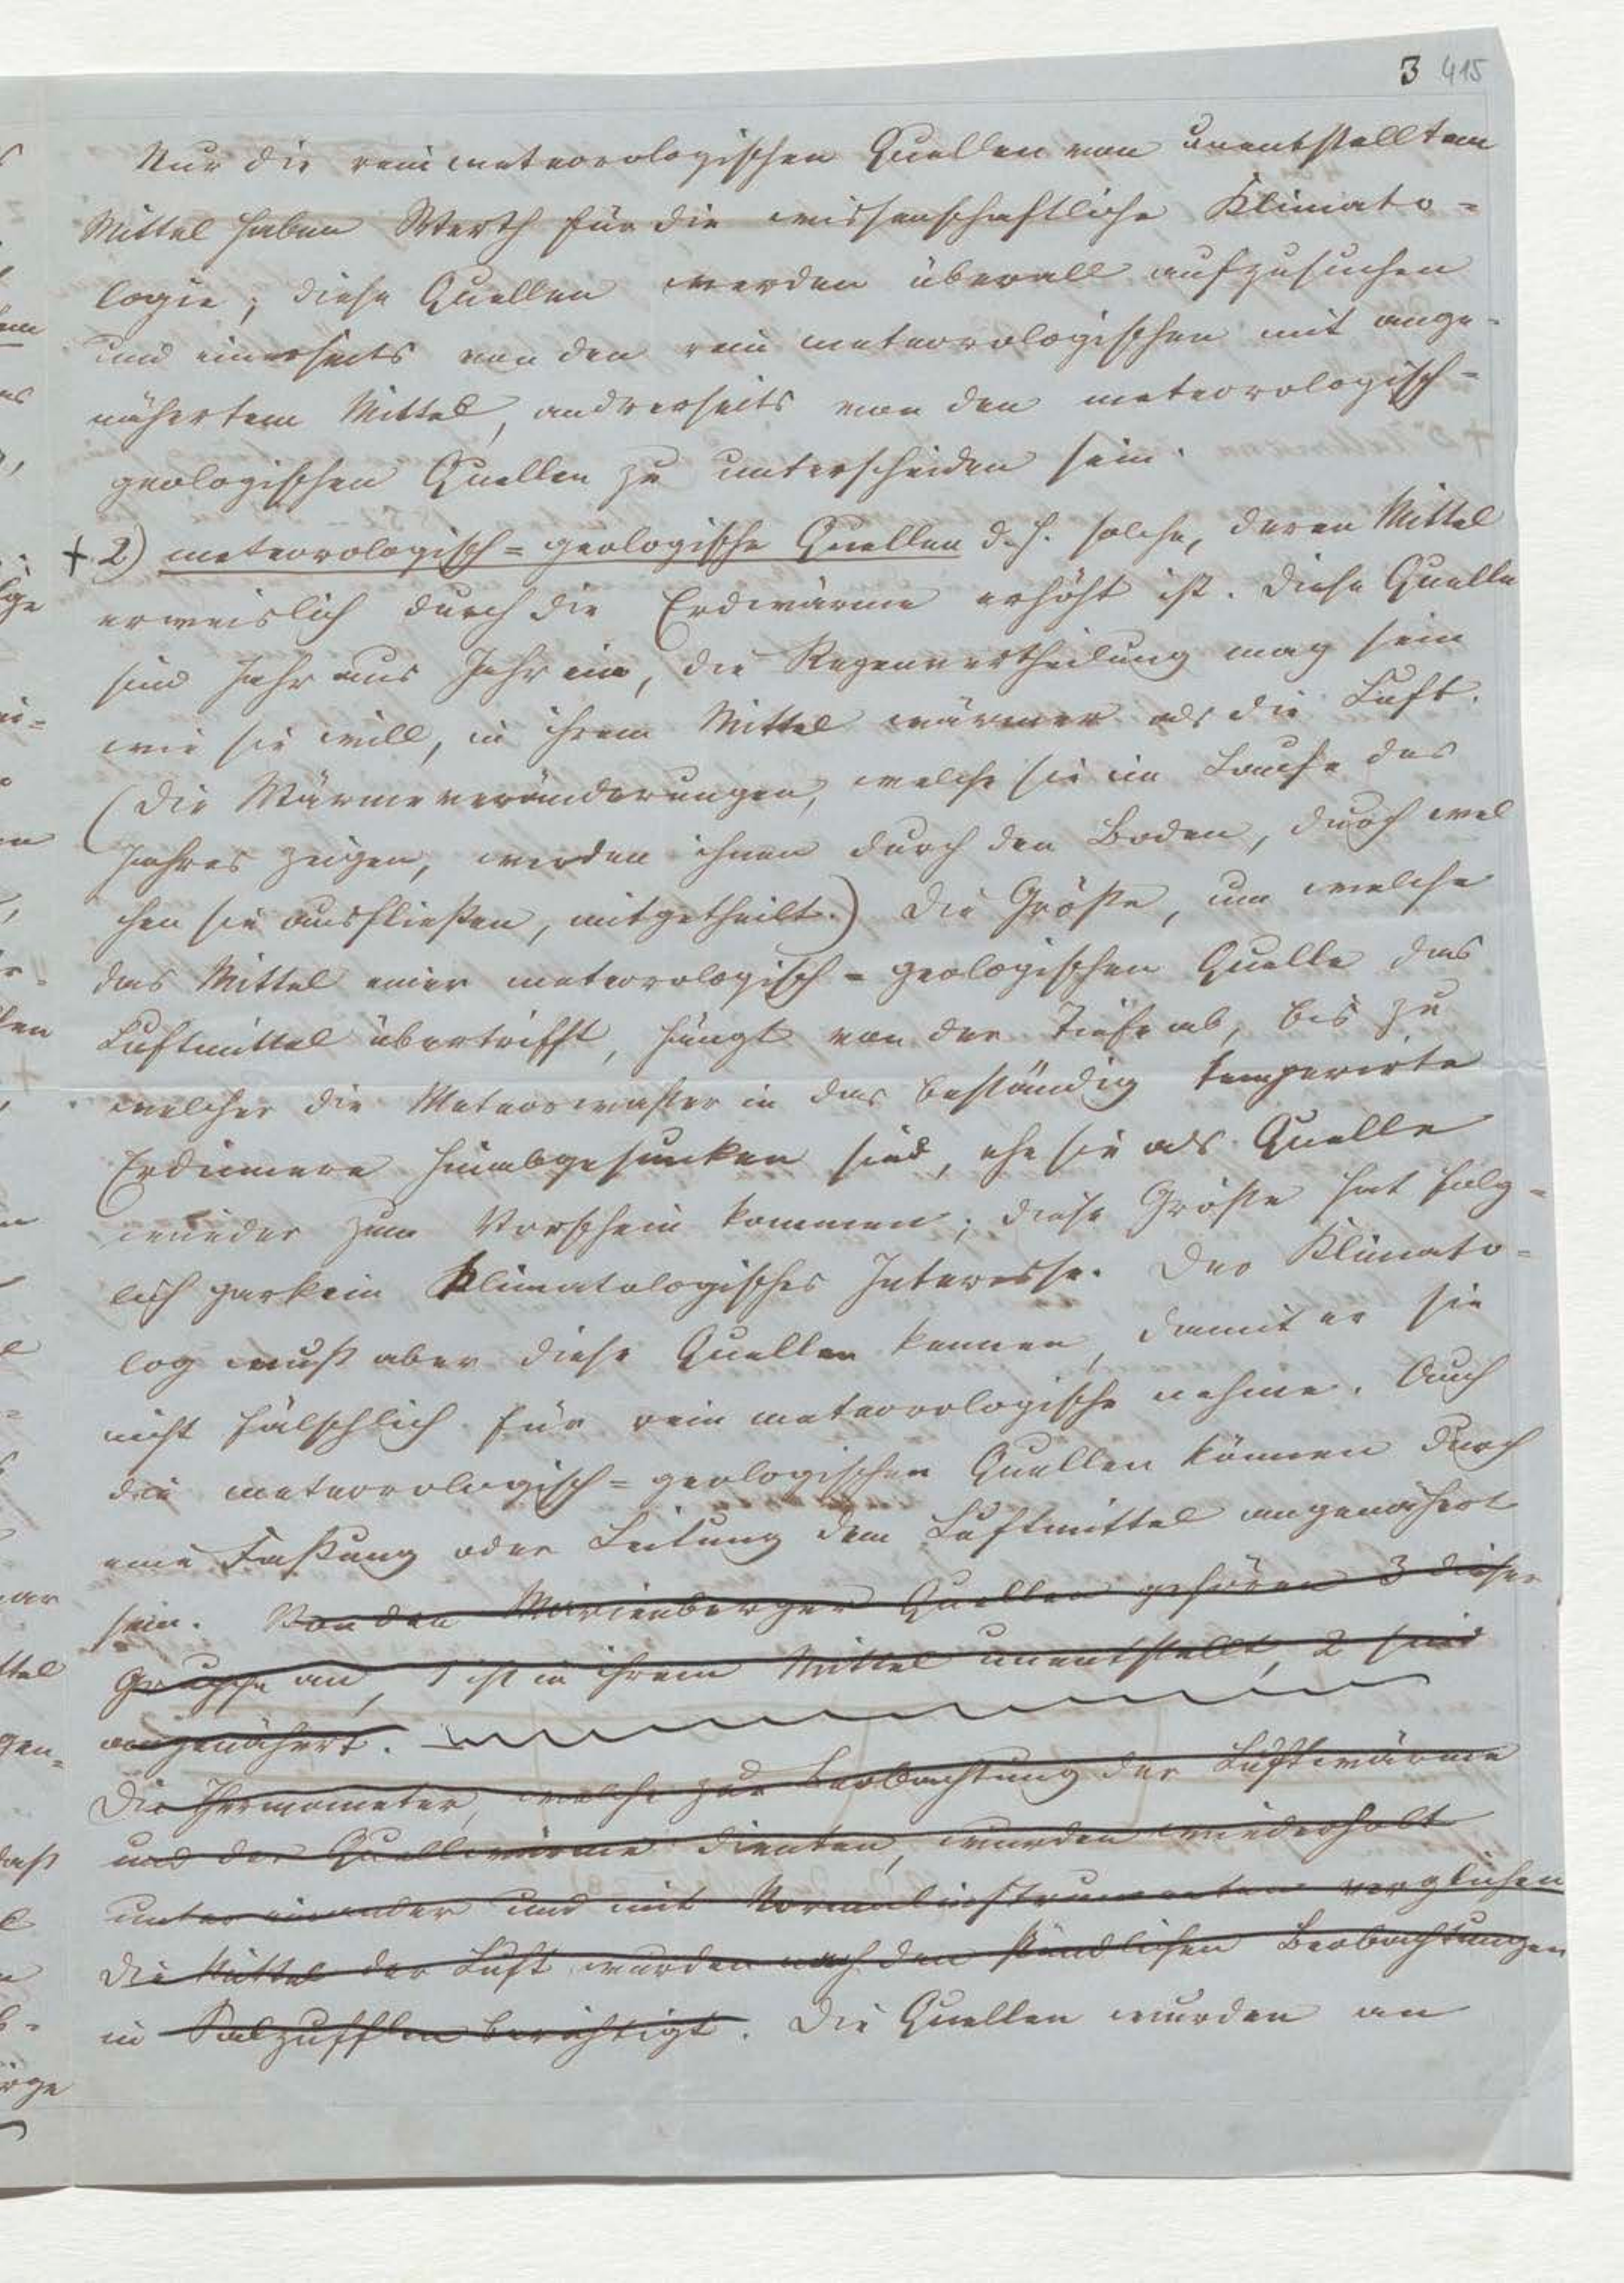 3 415
Nur die rein meteorologischen Quellen von unentstelltem
Mittel haben Werth für die wissenschaftliche Klimato=
logie; diese Quellen werden überall aufzusuchen
und einerseits von den rein meteorologischen mit ange=
nähertem Mittel, andrerseits von den meteorologisch=
geologischen Quellen zu unterscheiden sein.
+ 2) meteorologisch=geologische Quellen d. h. solche, deren Mittel
erweislich durch die Erdwärme erhöht ist. Diese Quellen
sind Jahr aus Jahr ein, die Regenvertheilung mag sein
wie sie will, in ihrem Mittel wärmer als die Luft.
(Die Wärmeveränderungen, welche sie im Laufe des
Jahres zeigen, werden ihnen durch den Boden, durch wel
chen sie ausfließen, mitgetheilt.) Die Größe, um welche
das Mittel einer meteorologisch=geologischen Quelle das
Luftmittel übertrifft, hängt von der Tiefe ab, bis zu
welcher die Meteorwasser in das beständig temperirte
Erdinnere hinabgesunken sind, ehe sie als Quelle
wieder zum Vorschein kommen; diese Größe hat folg=
lich gar kein klimatologisches Interesse. Der Klimato=
log muß aber diese Quellen kennen, damit er sie
nicht fälschlich für rein meteorologische nehme. Auch
die meteorologisch=geologischen Quellen können durch
eine Faßung oder Leitung dem Luftmittel angenähert
sein. Von den Marienberger Quellen gehören 3 dieser
Gruppe an, 1 ist in ihrem Mittel unentstellt, 2 sind
angenähert.
Die Thermometer, welche zur Beobachtung der Luftwärme
und der Quellwärme dienten, wurden wiederholt
unter einander und mit Normalinstrumenten verglichen
Die Mittel der Luft wurden nach den stündlichen Beobachtungen
in Salzufflen berichtigt. Die Quellen wurden an